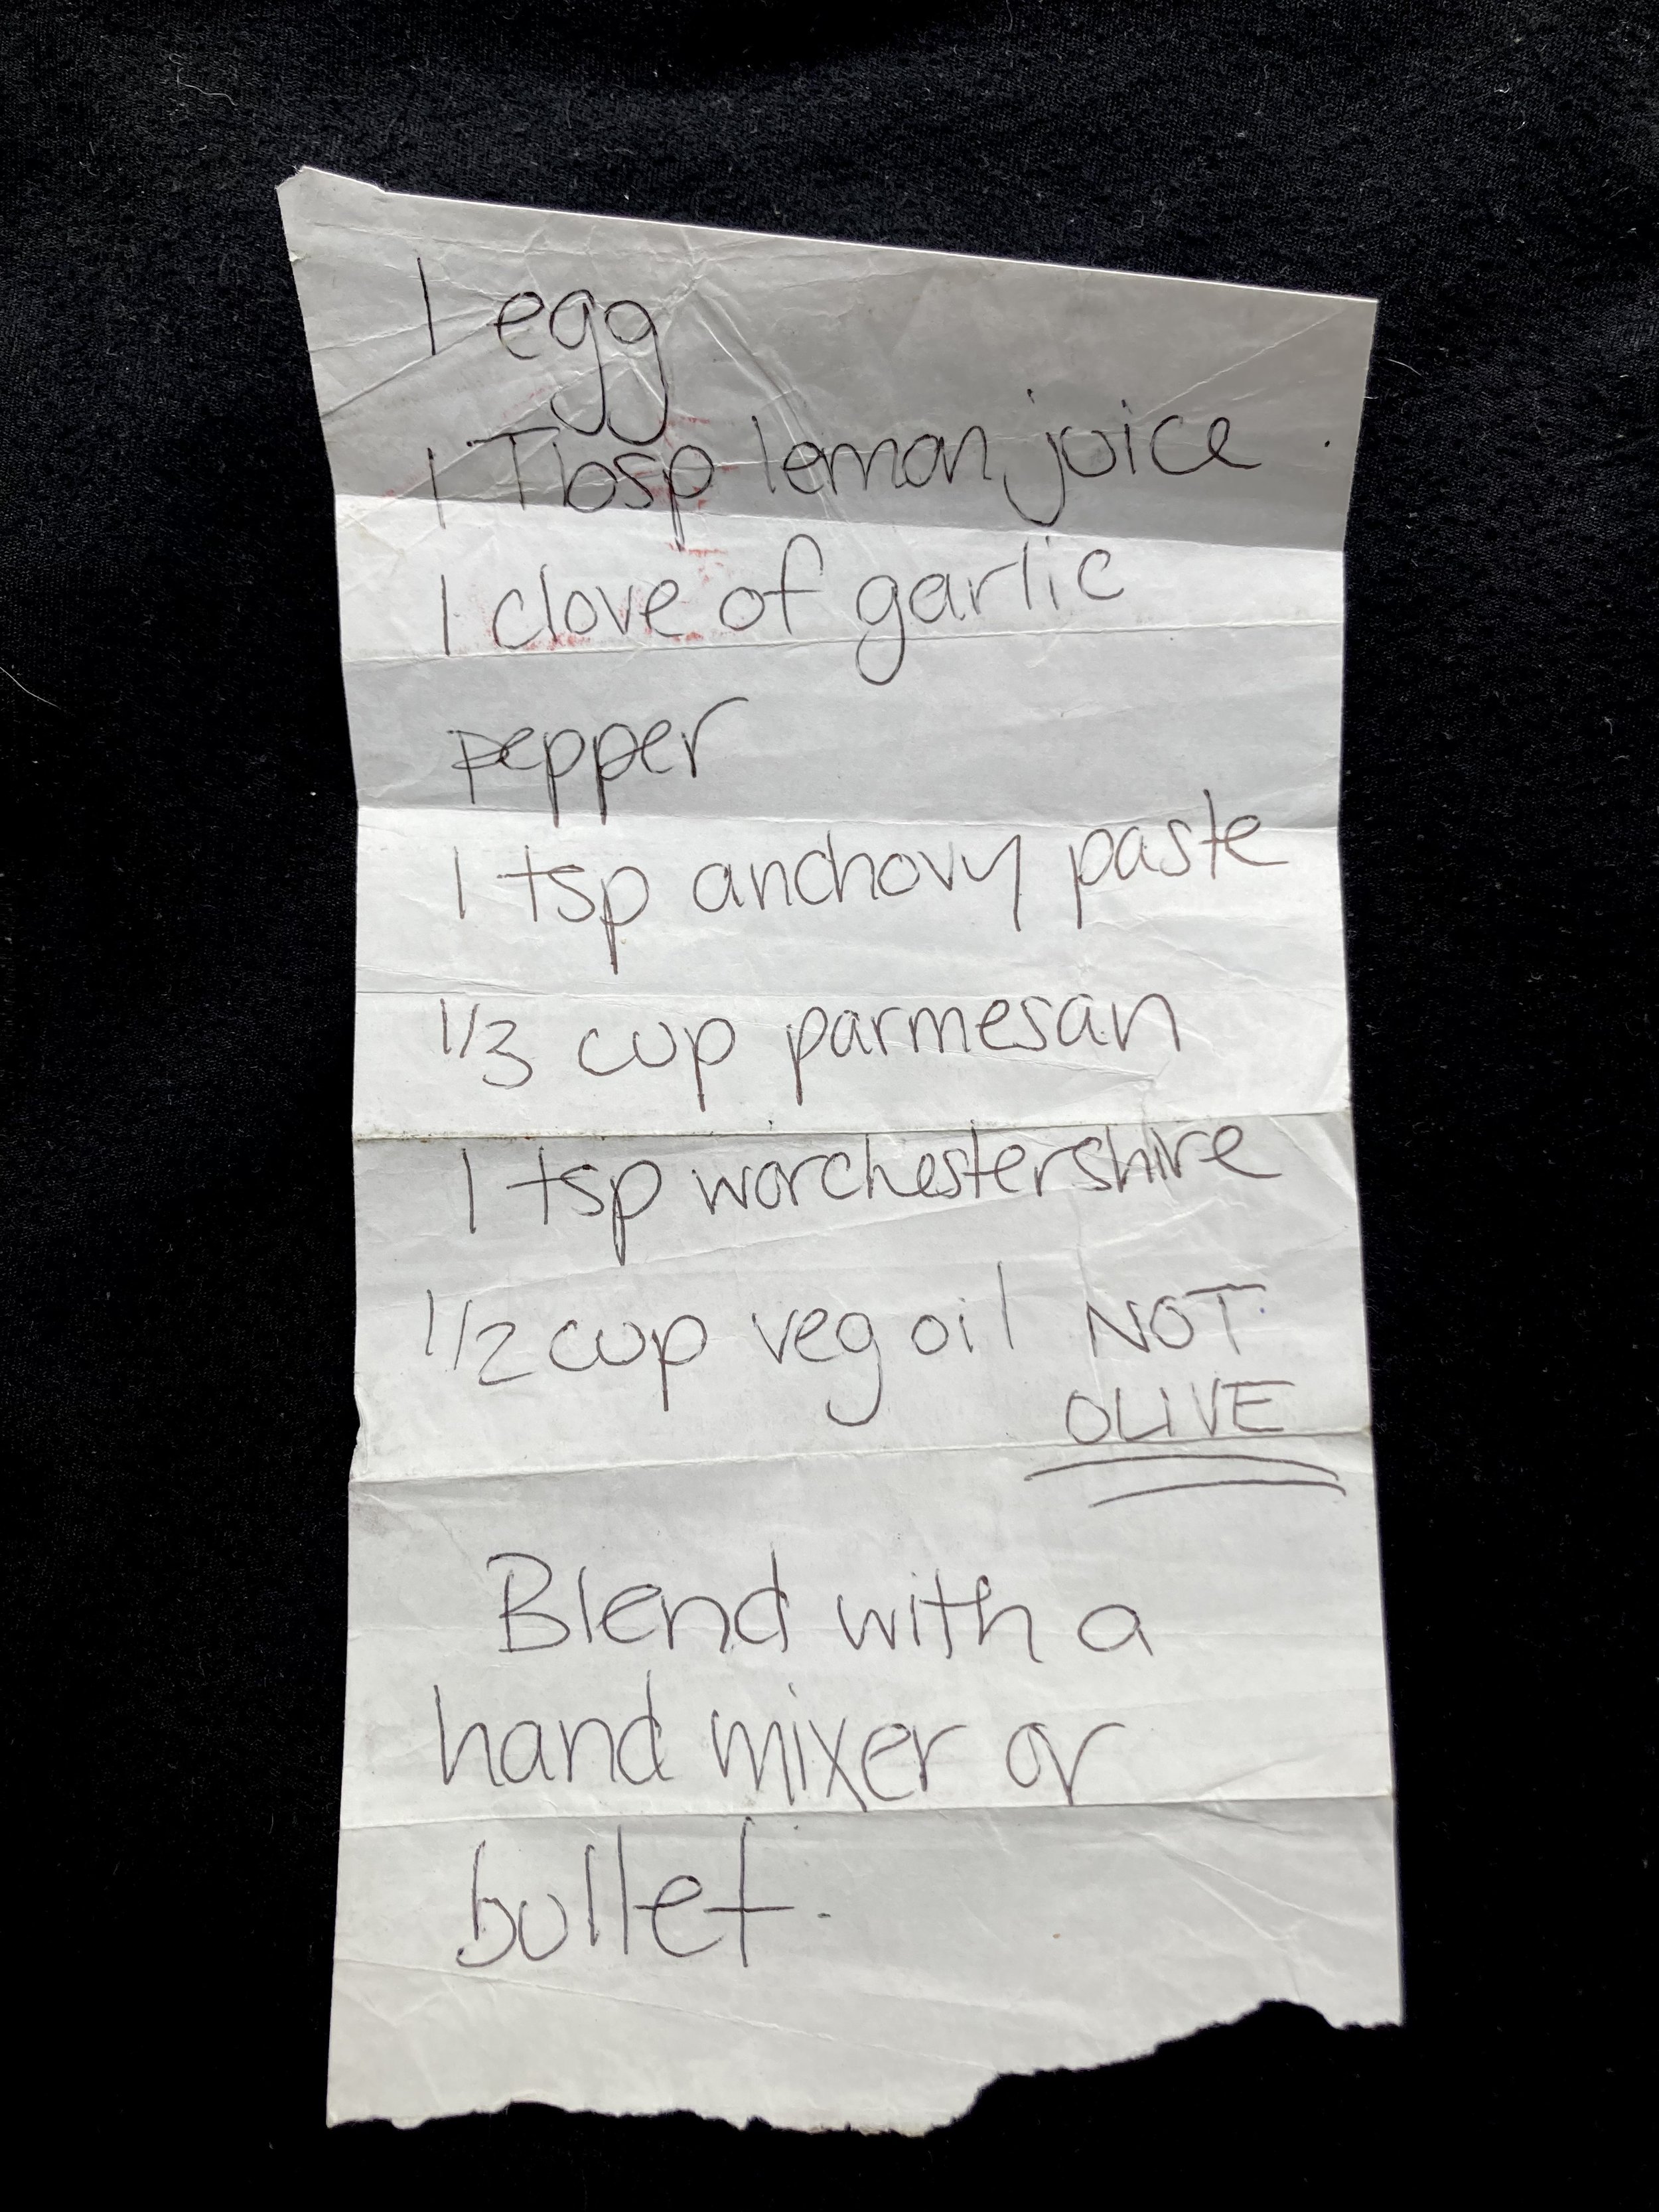 1 egg
1 Tbsp lemon juice
1 clove of garlic
pepper
1 tsp anchovy paste
1/3 cup parmesan
1 tsp worchestershire
1/2 cup veg oil NOT
OLIVE
Blend with a
hand mixer or
bullet.